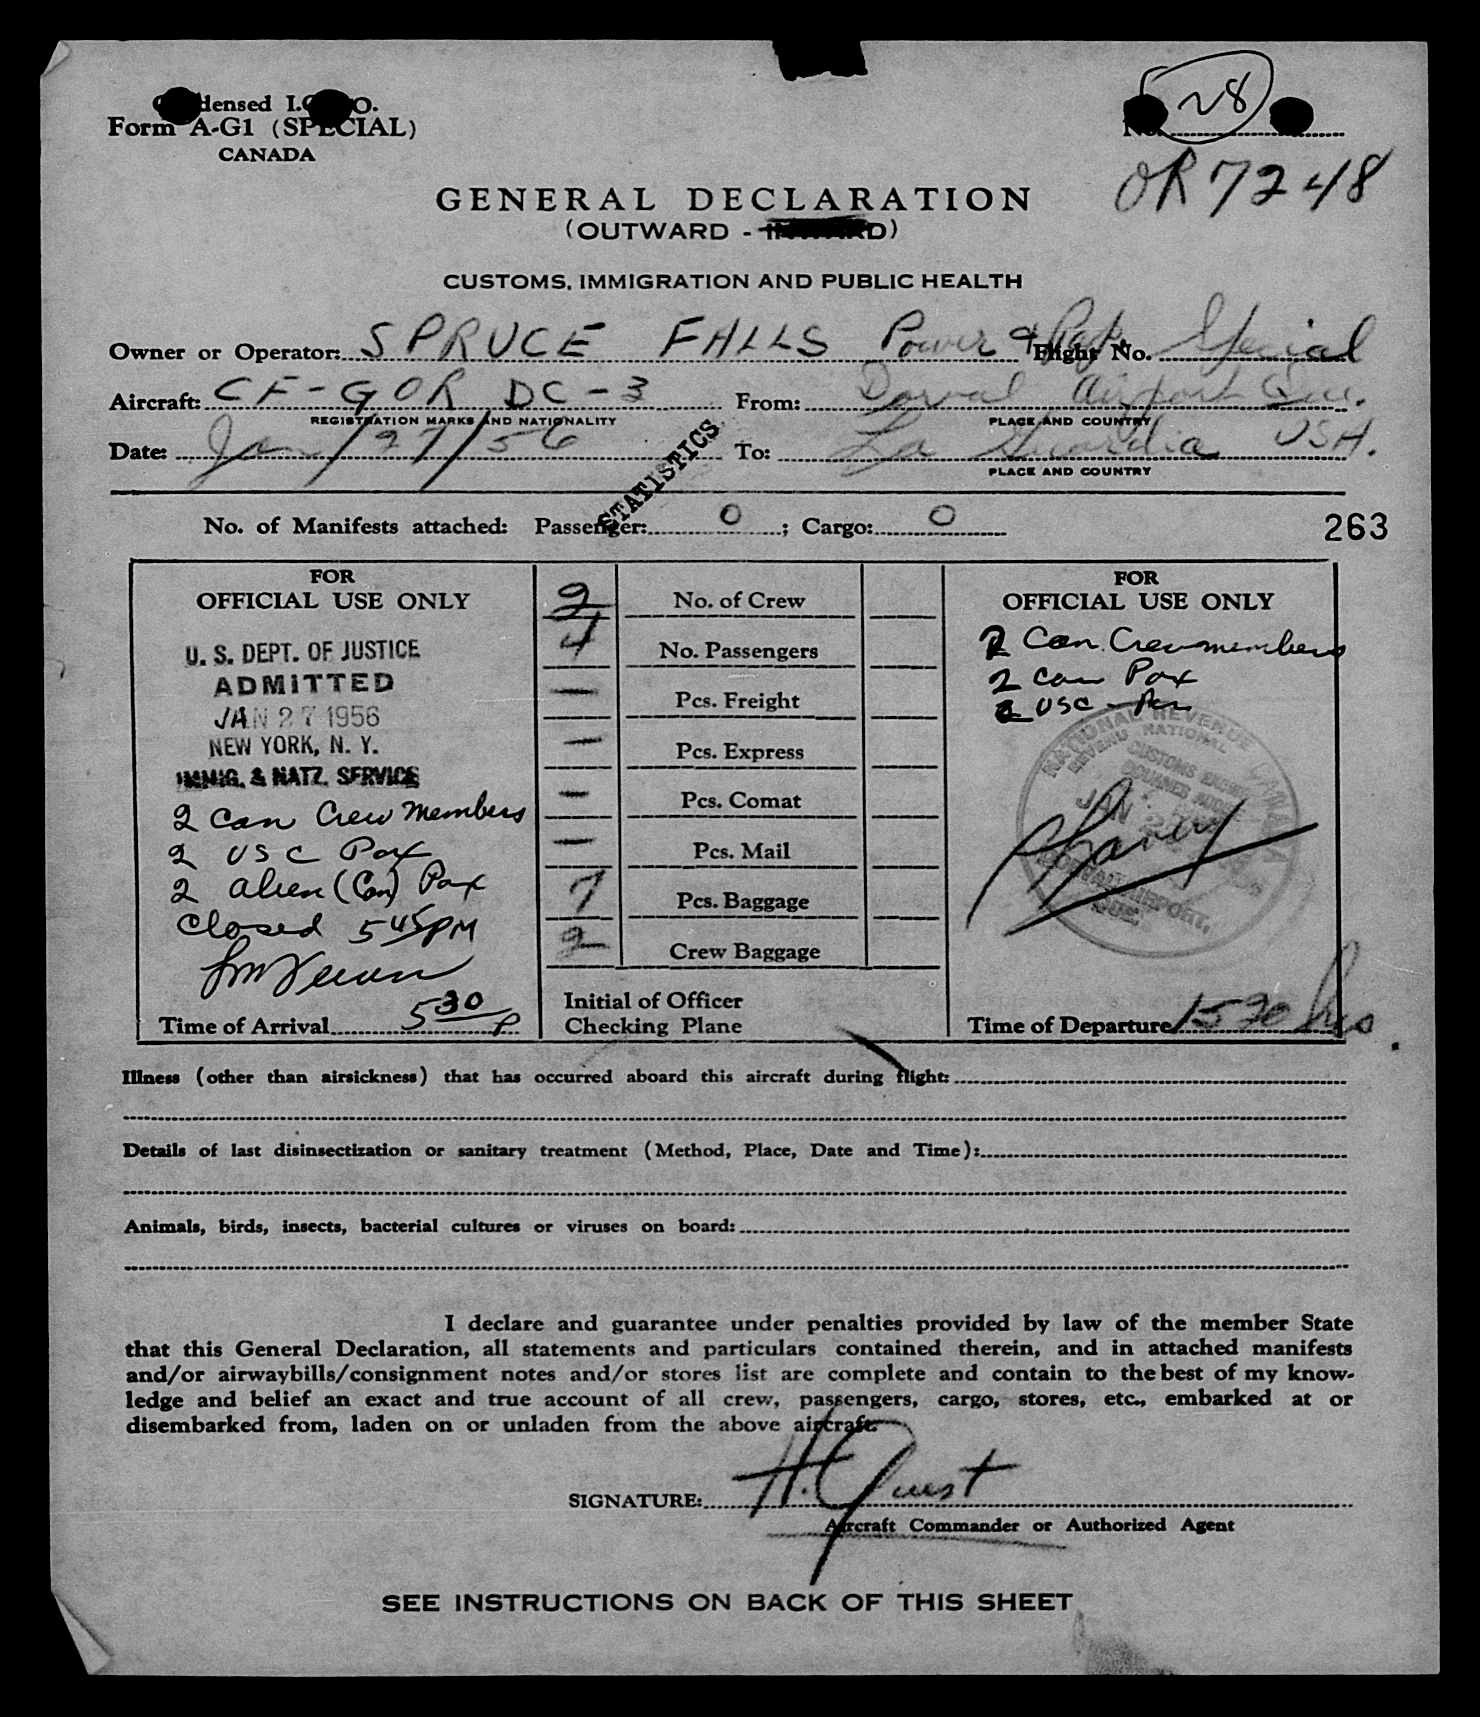 densed I.C. O.
Form A-G1 (SPECIAL)
CANADA
28
No.
OR 7248
GENERAL DECLARATION
(OUTWARD - INWARD)
CUSTOMS, IMMIGRATION AND PUBLIC HEALTH
Owner or Operator: SPRUCE FALLS Power & Paper Flight No. Special
Aircraft: CF-GOR DC-3 From: Dorval Airport Que.
REGISTRATION MARKS AND NATIONALITY PLACE AND COUNTRY
Date: Jan/27/56 To: La Guardia USA.
PLACE AND COUNTRY
STATISTICS
No. of Manifests attached: Passenger: 0; Cargo: 0
263
FOR
OFFICIAL USE ONLY
U. S. DEPT. OF JUSTICE
ADMITTED
JAN 27 1956
NEW YORK, N. Y.
IMMIG. & NATZ. SERVICE
2 Can Crew Members
2 USC Pax
2 alien (Can) Pax
Closed 545PM
Time of Arrival 530 P
2 No. of Crew
4 No. Passengers
— Pcs. Freight
— Pcs. Express
— Pcs. Comat
— Pcs. Mail
7 Pcs. Baggage
2 Crew Baggage
Initial of Officer
Checking Plane
FOR
OFFICIAL USE ONLY
2 Can. Crewmembers
2 Can Pax
2 USC - Pax
NATIONAL REVENUE
REVENU NATIONAL
CANADA
CUSTOMS EXCISE
DOUANES ACCISE
JAN 27
DORVAL AIRPORT,
QUE.
Time of Departure 1530 hrs.
Illness (other than airsickness) that has occurred aboard this aircraft during flight:
Details of last disinsectization or sanitary treatment (Method, Place, Date and Time):
Animals, birds, insects, bacterial cultures or viruses on board:
I declare and guarantee under penalties provided by law of the member State
that this General Declaration, all statements and particulars contained therein, and in attached manifests
and/or airwaybills/consignment notes and/or stores list are complete and contain to the best of my know-
ledge and belief an exact and true account of all crew, passengers, cargo, stores, etc., embarked at or
disembarked from, laden on or unladen from the above aircraft.
SIGNATURE: H. Quist
Aircraft Commander or Authorized Agent
SEE INSTRUCTIONS ON BACK OF THIS SHEET